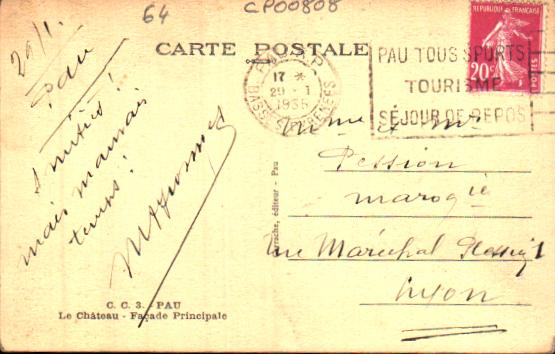 64
CP00808
CARTE POSTALE
REPUBLIQUE FRANÇAISE
20c
POSTES
17 *
29 - 1
1935
BASSES PYRENEES
PAU TOUS SPORTS
TOURISME
SÉJOUR DE REPOS
29/1.
Pau
mais mauvais
temps!
Mme et Mr
Pession
rue Maréchal
Lyon
éditeur - Pau
C. C. 3. - PAU
Le Château - Façade Principale